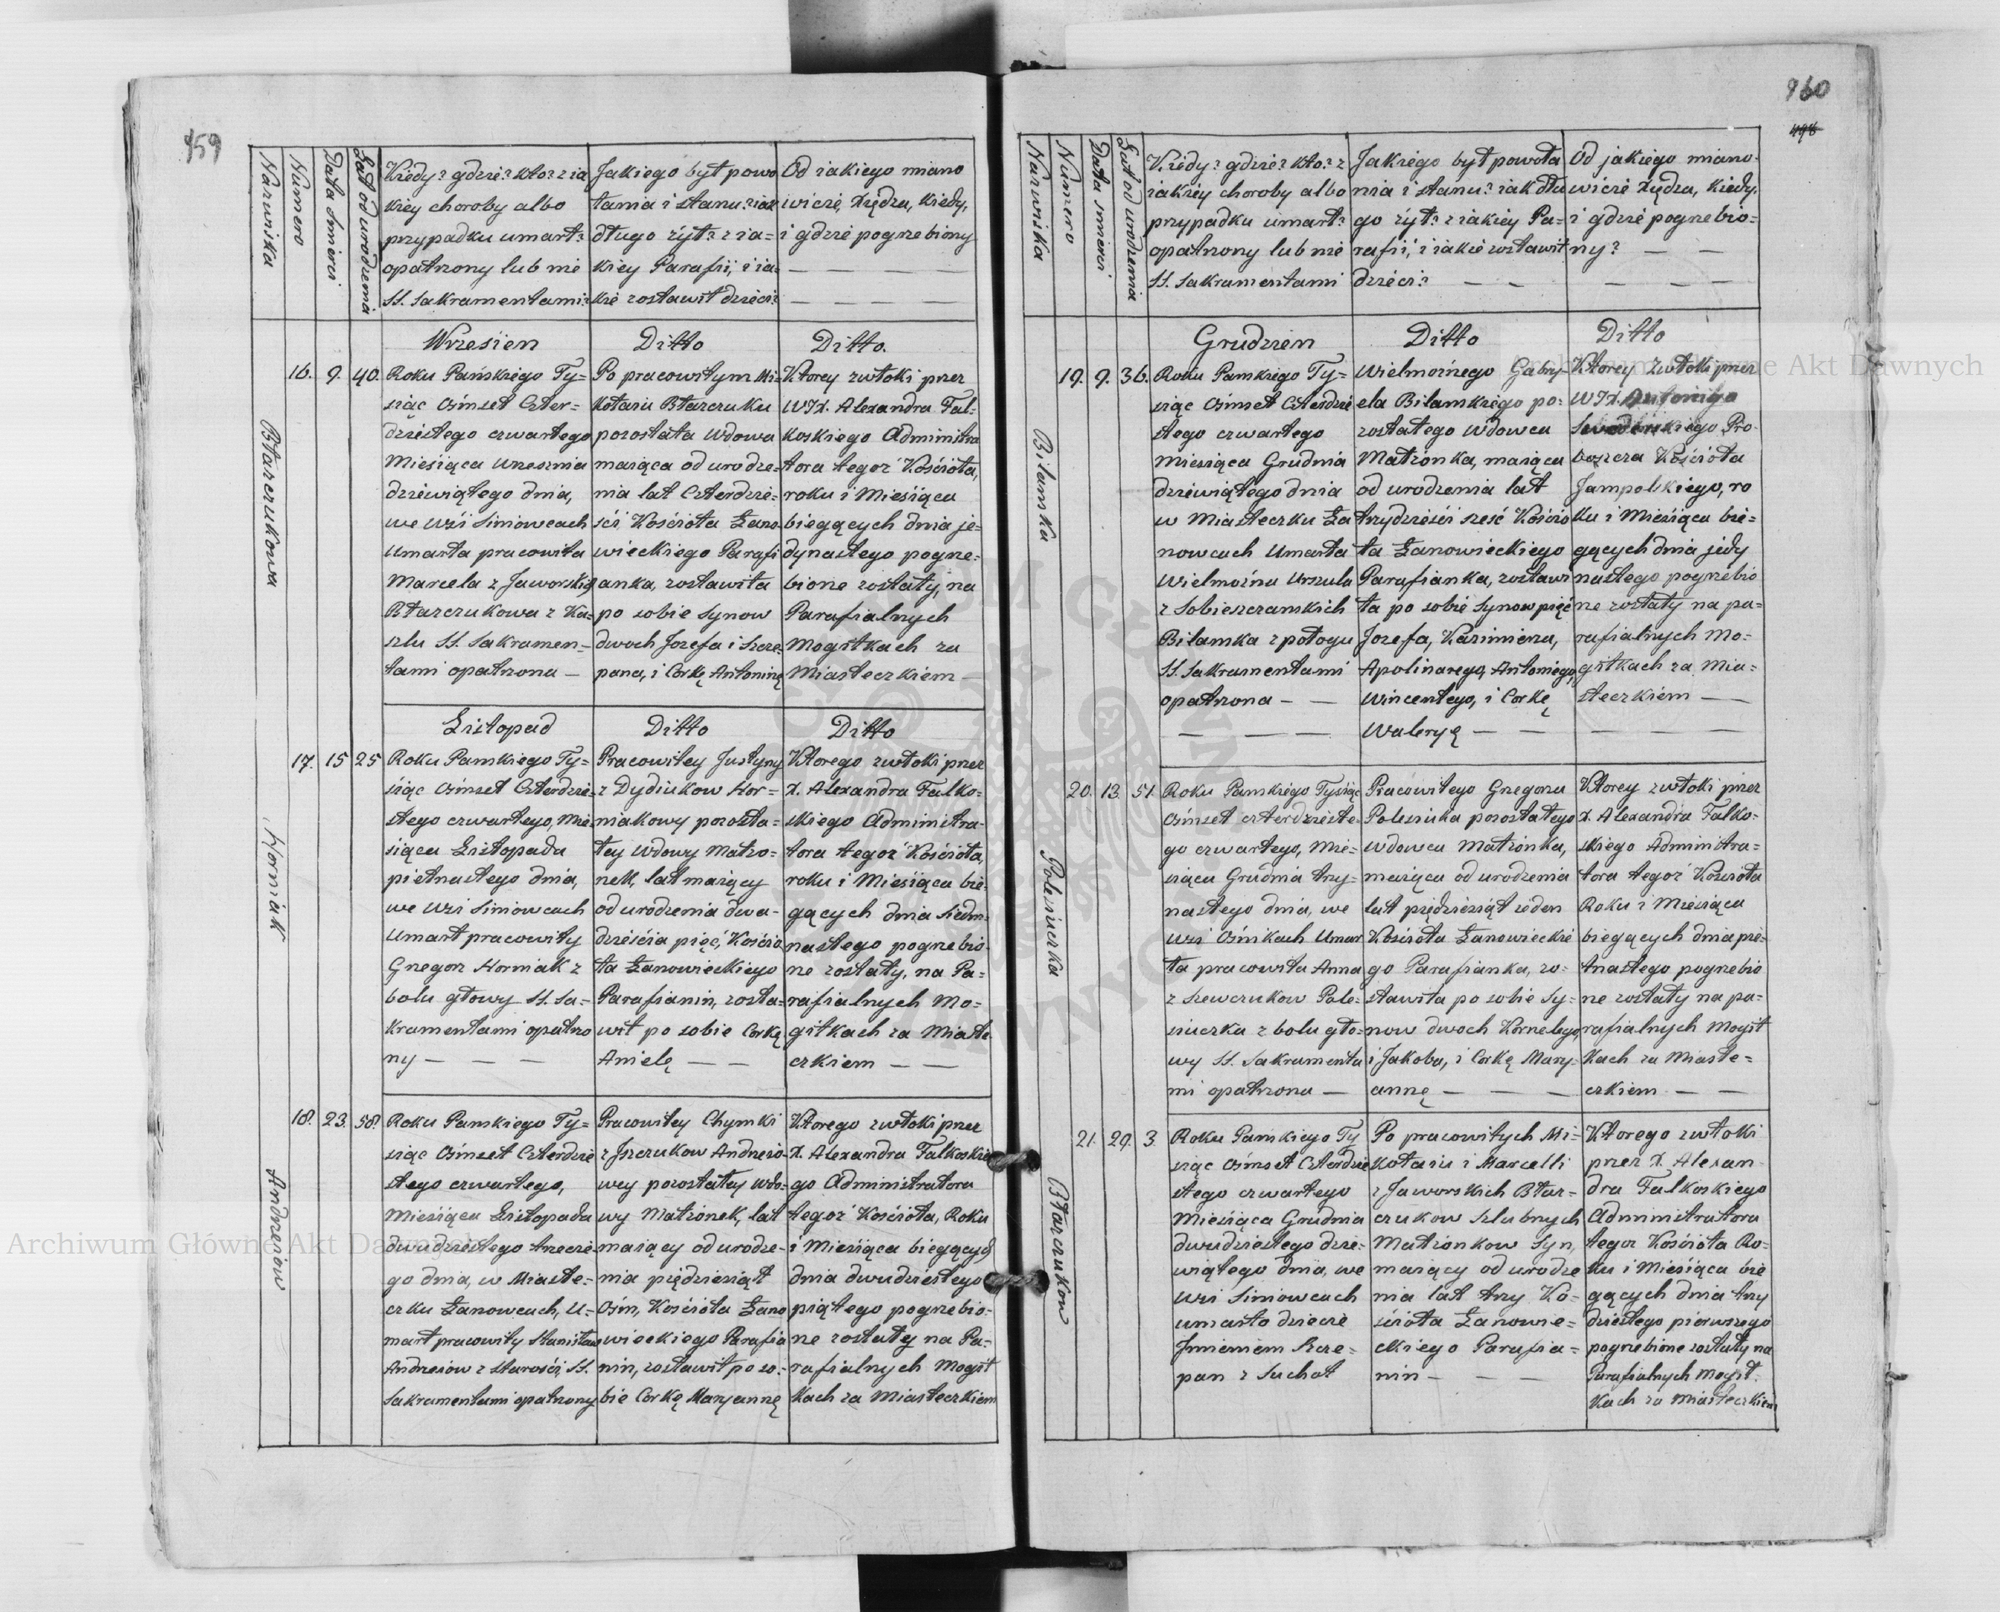 459
Nazwiska
Numero
Data śmierci
Lat od urodzenia
Kiedy? gdzie? kto? z ia
kiey choroby albo
przypadku umarł?
opatrzony lub nie
SS. Sakramentami?
Jakiego był powo
łania i stanu? iak
długo żył? z ia=
kiey Parafii, i ia=
kie zostawił dzieci?
Od iakiego miano
wicie Xiędza, kiedy,
i gdzie pogrzebiony
Wrzesień
Ditto
Ditto.
Błaszczukowa
16.
9.
40.
Roku Pańskiego Ty=
siąc Ośmset Czter=
dziestego czwartego
Miesiąca Wrzesnia
dziewiątego dnia,
we Wsi Siniowcach
Umarła pracowita
Marcela z Jaworskich
Błaszczukowa z Ka=
szlu SS. Sakramen=
tami opatrzona —
Po pracowitym Mi=
kołaiu Błaszczuku
pozostała Wdowa
maiąca od urodze=
nia lat Czterdzie=
ści Kościoła Łano=
wieckiego Parafi
anka, zostawiła
po sobie Synow
dwoch Jozefa i Szcze
pana, i Corkę Antoninę
Ktorey zwłoki przez
WJX. Alexandra Fal=
koskiego Administra
tora tegoż Kościoła,
roku i Miesiąca
bieggących dnia je=
dynastego pogrze=
bione zostały, na
Parafialnych
Mogiłkach za
Miasteczkiem —
Listopad
Ditto
Ditto
Horniak
17.
15
25
Roku Pamskiego Ty=
siąc Ośmset Czterdzie=
stego czwartego, Mie
siąca Listopada
pietnastego dnia,
we Wsi Siniowcach
Umarł pracowity
Gregorz Horniak z
bolu głowy SS. Sa=
kramentami opatrzo
ny — — —
Pracowitey Justyny
z Dydiukow Hor=
niakowy pozosta=
łey Wdowy Małżo=
nek, lat maiący
od urodzenia dwa=
dzieścia pięć, Kościo
ła Łanowieckiego
Parafianin, zosta=
wił po sobie Corkę
Anielę — —
Ktorego zwłoki przez
X. Alexandra Falko=
skiego Administra=
tora tegoż Kościoła,
roku i Miesiąca bie=
gących dnia siedm=
nastego pogrzebio=
ne zostały, na Pa=
rafialnych Mo=
giłkach za Miaste
czkiem — —
Andrzeiow
18.
23.
58.
Roku Pamskiego Ty=
siąc Ośmset Czterdzie
stego czwartego,
Miesiąca Listopada
dwudziestego trzecie
go dnia, w Miaste=
czku Łanowcach, U=
marł pracowity Stanisław
Andrzeiow z starości, SS.
Sakramentami opatrzony
Pracowitey Chymki
z Jszczukow Andrzeio=
wey pozostałey Wdo=
wy Małżonek, lat
maiący od urodze=
nia pięćdziesiąt
Ośm, Kościoła Łano
wieckiego Parafia
nin, zostawił po so=
bie Corkę Maryannę
Ktorego zwłoki przez
X. Alexandra Falkoskie
go Administratora
tegoż Kościoła, Roku
i Miesiąca biegących
dnia dwudziestego
piątego pogrzebio=
ne zostały na Pa=
rafialnych Mogił
kach za Miasteczkiem
960
498
Nazwiska
Numero
Data śmierci
Lat od urodzenia
Kiedy? gdzie? kto? z
iakiey choroby albo
przypadku umarł?
opatrzony lub nie
SS. Sakramentami
Jakiego był powoła
nia i stanu? iak dłu
go żył? z iakiey Pa=
rafii, i iakie zostawił
dzieci? — —
Od jakiego miano=
wicie Xiędza, kiedy,
i gdzie pogrzebio=
ny? — —
— — —
Grudzień
Ditto
Ditto
Bilamska
19.
9.
36.
Roku Pamskiego Ty=
siąc Ośmset Czterdzie
stego czwartego
Miesiąca Grudnia
dziewiątego dnia
w Miasteczku Ła
nowcach Umarła
Wielmożna Urszula
z Sobieszczanskich
Bilamska z połogu
SS. Sakramentami
opatrzona — —
— — —
Wielmożnego Gabry=
ela Bilamskiego po=
zostałego Wdowca
Małżonka, maiąca
od urodzenia lat
trzydzieści sześć Kościo
ła Łanowieckiego
Parafianka, zostawi
ła po sobie Synow pięć
Jozefa, Kazimierza,
Apolinarego, Antoniego,
Wincentego, i Corkę
Waleryę — —
Ktorey zwłoki przez
WJX. Antoniego
Pro=
boszcza Kościoła
Jampolskiego, ro
ku i Miesiąca bie=
gących dnia jedy
nastego pogrzebio
ne zostały na pa=
rafialnych Mo=
giłkach za Mia=
steczkiem —
— — —
Polesiuczka
20.
13.
51.
Roku Pamskiego Tysiąc
Ośmset czterdzieste
go czwartego, Mie=
siąca Grudnia trzy=
nastego dnia, we
Wsi Ośnikach Umar
ła pracowita Anna
z Szewczukow Pole=
siuczka z bolu gło=
wy SS. Sakramenta
mi opatrzona —
Pracowitego Gregorza
Polesiuka pozostałego
Wdowca Małżonka,
maiąca od urodzenia
lat pięćdziesiąt ieden
Kościoła Łanowieckie
go Parafianka, zo=
stawiła po sobie Sy=
now dwoch Kornelego,
i Jakoba, i Corkę Mary=
annę — — —
Ktorey zwłoki przez
X. Alexandra Falko=
skiego Administra=
tora tegoż Kościoła
Roku i Miesiąca
biegących dnia pie=
tnastego pogrzebio
ne zostały na pa=
rafialnych Mogił
kach za Miaste=
czkiem — —
Błaszczukow
21.
29.
3.
Roku Pańskiego Ty
siąc Ośmset Czterdzie
stego czwartego
Miesiąca Grudnia
dwudziestego dzie=
wiątego dnia, we
Wsi Siniowcach
umarło dziecie
Jmieniem Szcze=
pan z Suchot
Po pracowitych Mi=
kołaiu i Marcelli
z Jaworskich Błasz=
czukow szlubnych
Małżonkow Syn,
maiący od urodze
nia lat trzy Ko=
ścioła Łanowie=
ckiego Parafia=
nin — — —
Ktorego zwłoki
przez X. Alexan
dra Falkoskiego
Administratora
tegoz Kościoła Ro=
ku i Miesiąca bie
gących dnia trzy
dziestego pierwszego
pogrzebione zostały na
Parafialnych Mogił=
kach za Miasteczkiem
Archiwum Główne Akt Dawnych
Archiwum Główne Akt Dawnych